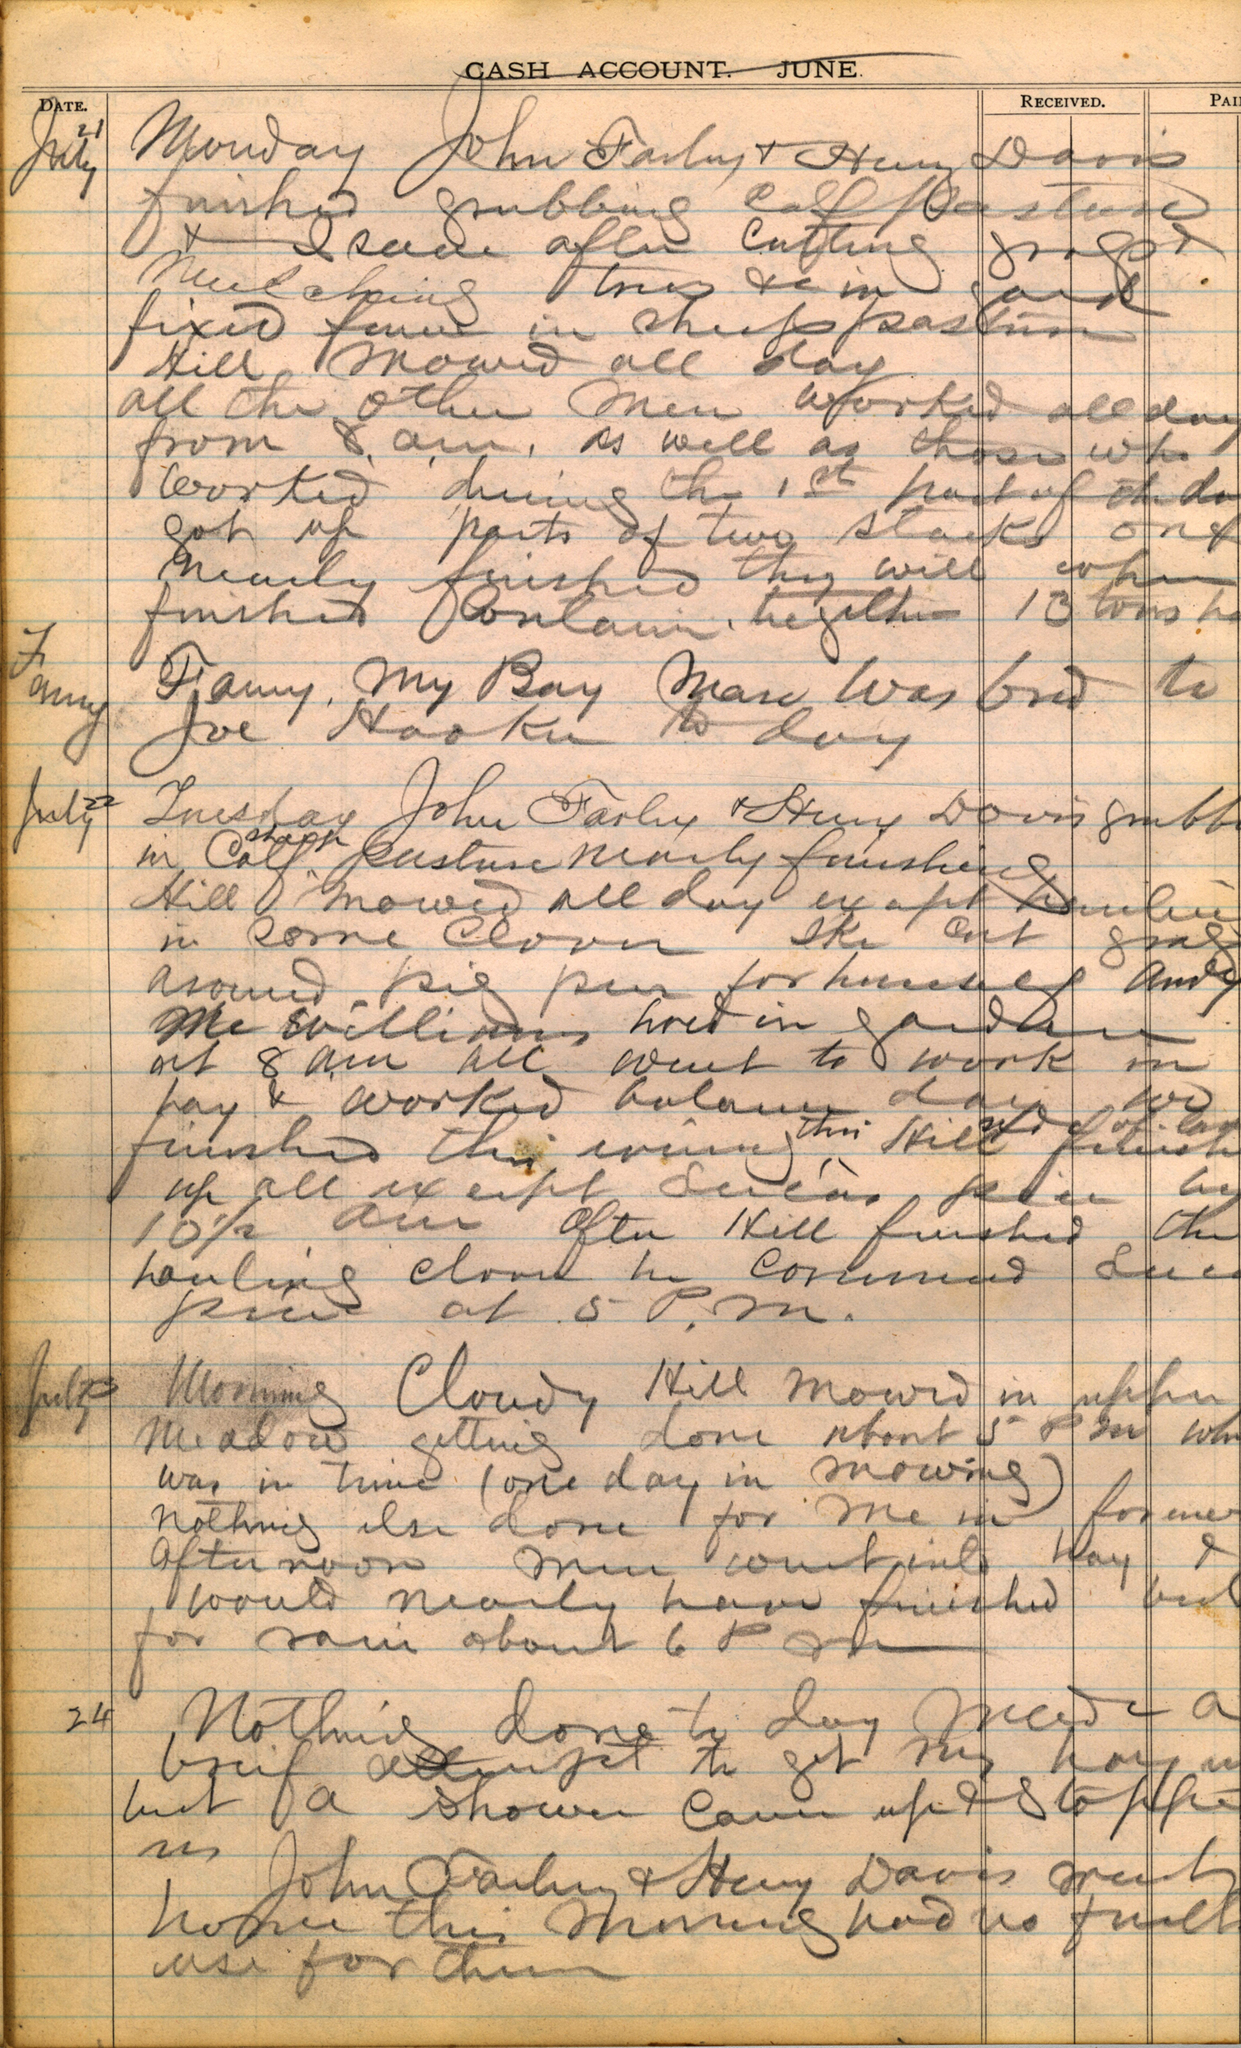 CASH ACCOUNT. JUNE
DATE. RECEIVED. PAI
July 21 Monday John Farley & Henry Davis
finished grubbing Calf pasture
& after cutting grass &
Mulching trees &c in yard
fixed fence in sheep pasture
Hill mowed all day
all the other men worked all day
from 8 am. as well as those who
worked during the 1st part of the da
got up parts of two stacks one
nearly finished they will when
finished contain together 13 tons ha
Fanny Fanny. My Bay Mare was bred to
Joe Hooker to day
July 22 Tuesday John Farley & Henry Davis grubb
in Calf sheep pasture nearly finishing
Hill mowed all day except hauling
in some Clover Ike cut grass
around pig pen for himself Andy
McWilliams hoed in garden
at 8 am all went to work in
hay & worked balance day we
finished this evening this Hill finish
up all except piece by
10½ am After Hill finished the
hauling clover he commenced
piece at 5 P.M.
July 23 Morning Cloudy Hill mowed in upper
Meadow getting done about 5 PM wh
was in time (one day in mowing)
nothing else done for me in
afternoon men went into hay &
would nearly have finished but
for rain about 6 P m
24 Nothing done to day Made a
brief attempt to get my hay in
but a shower came up & stoppe
us
John Farley & Henry Davis went
home this morning had no furth
use for them